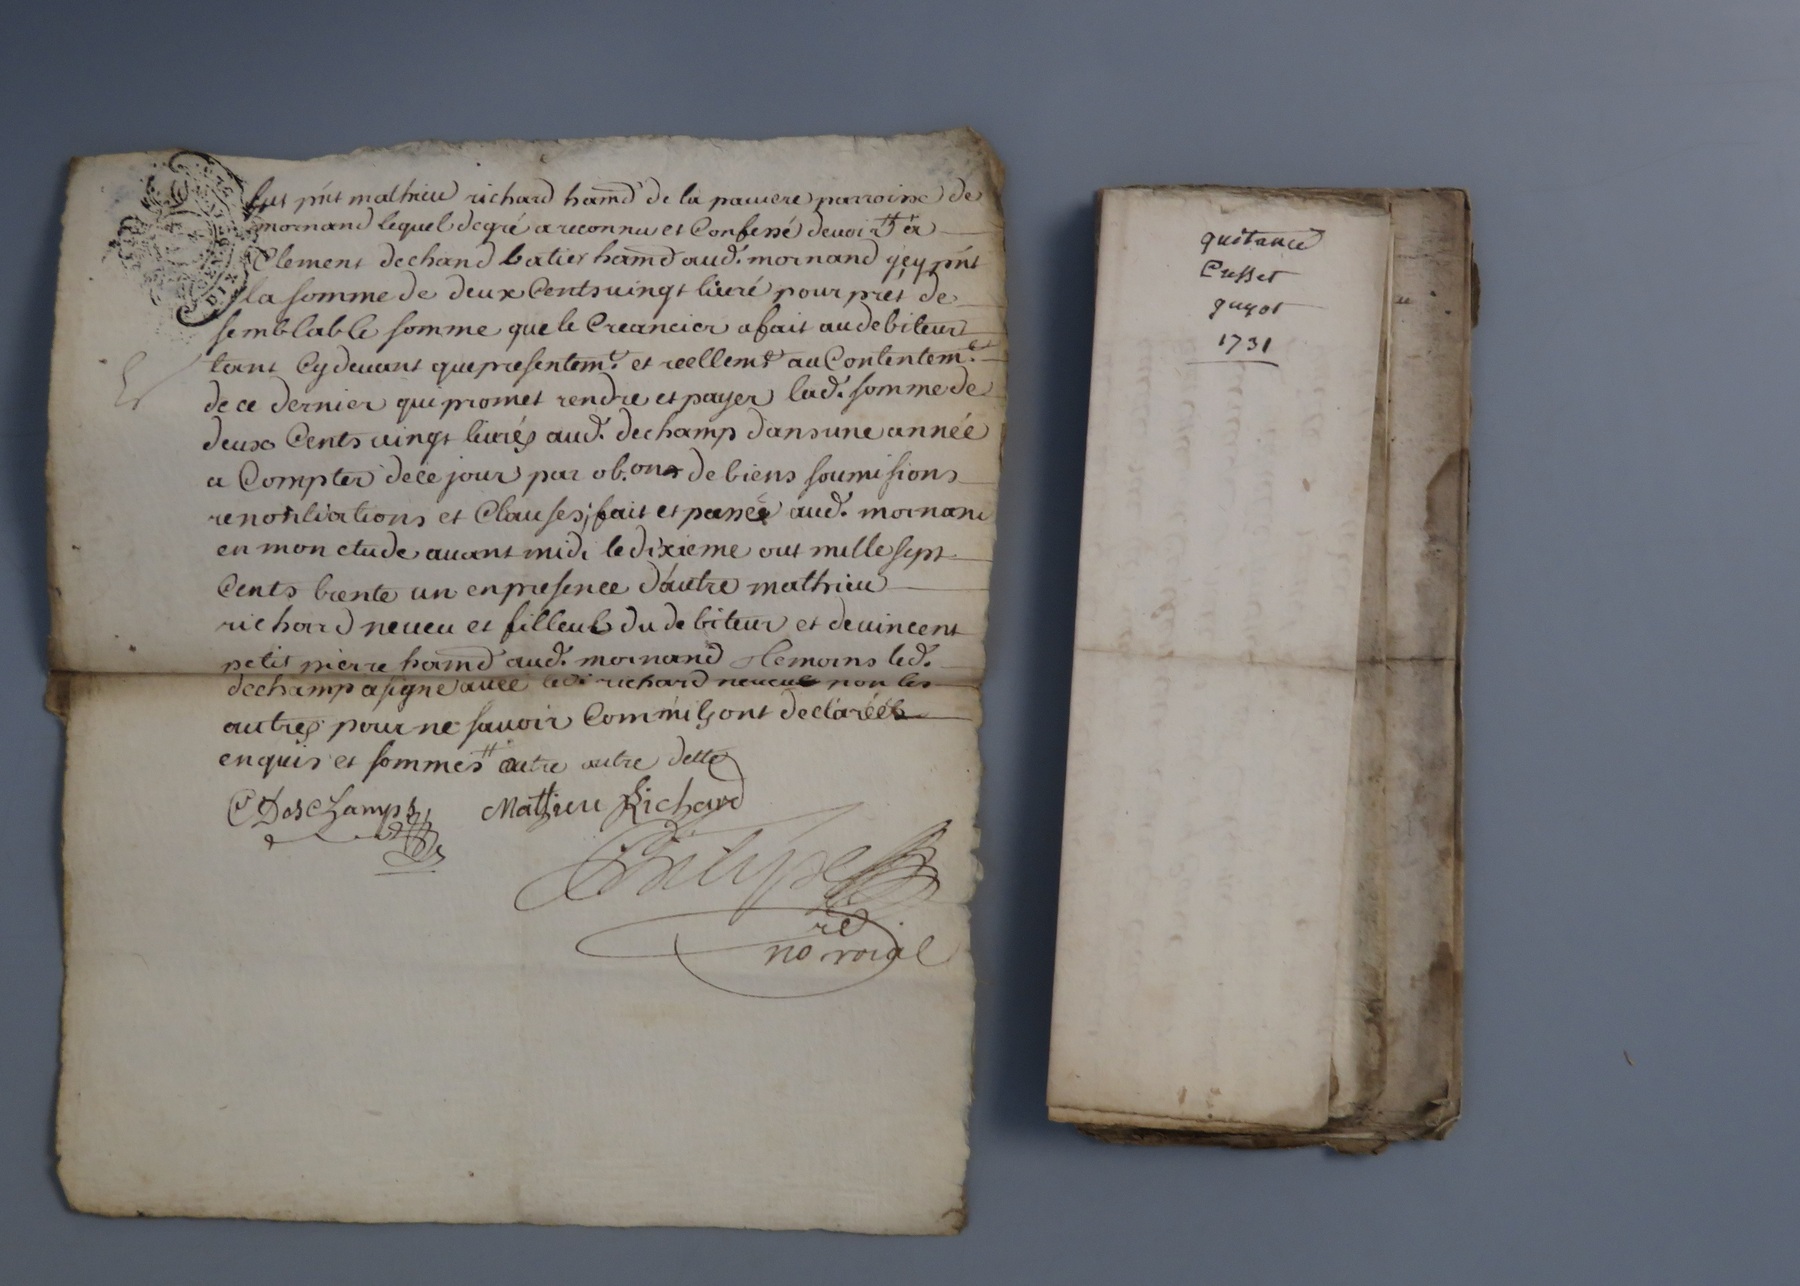 fut pnt mathieu richard hamd de la pauiere parroisse de
mornand lequel de gré a reconnu et Confessé devoir a
Clement dechand hamd aud. mornand pnt
la somme de deux Cents vingt livré pour pret de
semblable somme que le Creancier a fait au debiteur
tant Cy devant que presentemt. et reellemt au Contentemt.
de ce dernier qui promet rendre et payer lad. somme de
deux Cents vingt livrés aud. dechamp dans une année
a Compter de ce jour par ob.ons de biens soumisions
renonciations et Clauses; fait et passé aud. mornand
en mon etude avant midi le dixieme out mille sept
Cents trente un en presence d'autre mathieu
richard neveu et filleul du debiteur et de vincent
petit pierre hamd aud. mornand temoins led.
dechamp a signé avec led. richard neveu non les
autres pour ne savoir Comm'ils ont declaré
enquis et sommés # outre autre dette
C Deschamps Mathieu Richard
nore roial
quitance
Cusset
guyot
1731